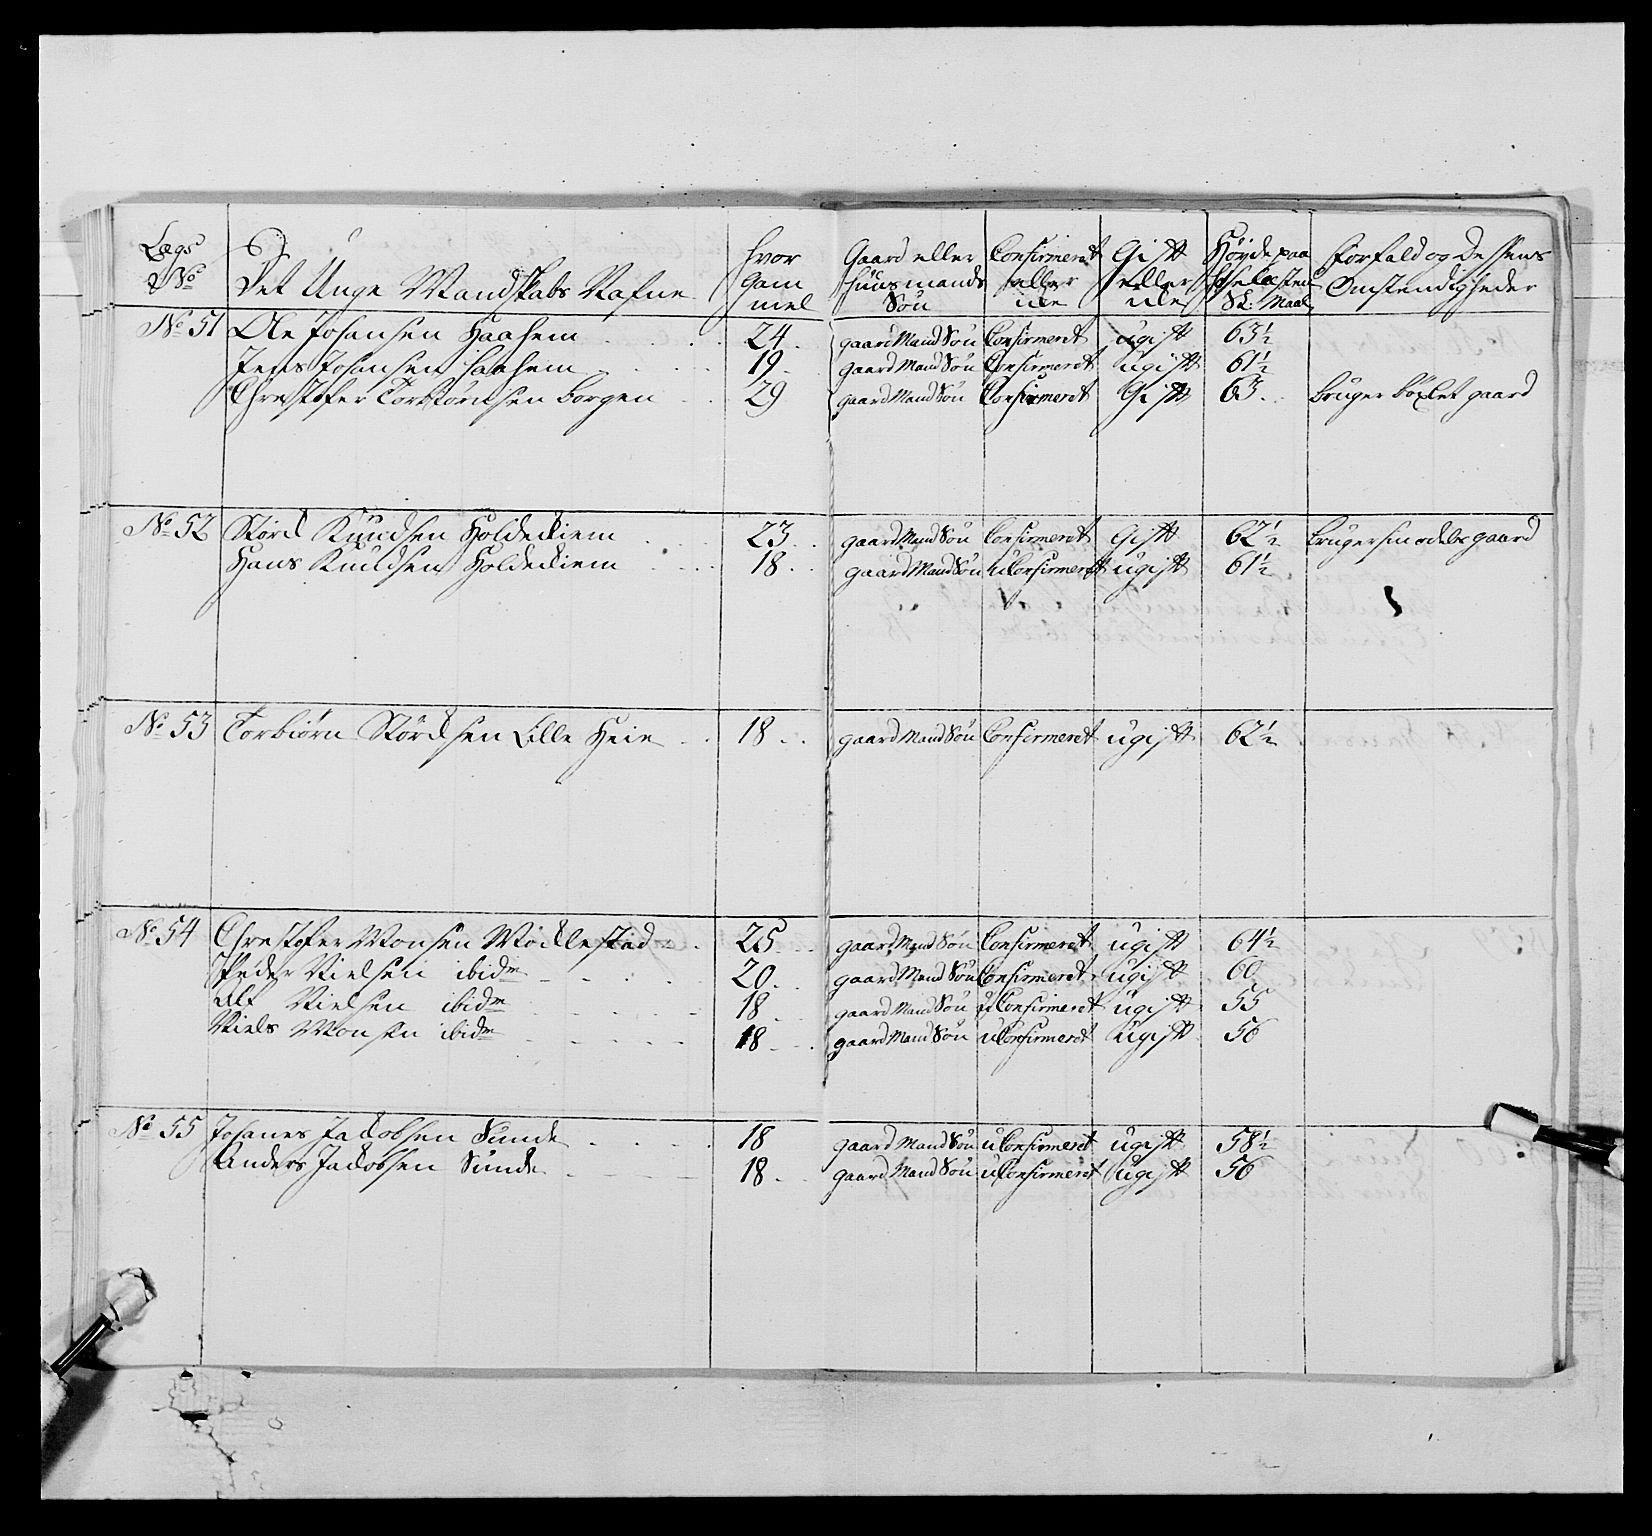 Lægs No Det Unge Mandskabs Nafne hvor gam mel Gaard eller huusmands Søn Confirmeret eller ele Gift eller ele Høyde paa Sk: Maal Forfald og Dessens Omstendigheder
No 51 Ole Johansen Haahem 24 gaard Mand Søn Confirmeret ugift 63½
Jens Johansen Haahem 19 gaard Mand Søn Confirmeret ugift 61½
Chrestofer Torbiörnsen Borgen 29 gaard Mand Søn Confirmeret Gift 63 bruger böxlet gaard
No 52 Knudsen 23 gaard Mand Søn Confirmeret Gift 62½ bruger sin odels gaard
Hans Knudsen 18 gaard Mand Søn uConfirmeret ugift 61½
No 53 Torbiörn Lille Heie 18 gaard Mand Søn Confirmeret ugift 62½
No 54 Chrestofer Monsen Möcklestad 25 gaard Mand Søn Confirmeret ugift 64½
Peder Nielsen ibidm 20 gaard Mand Søn Confirmeret ugift 60
Alf Nielsen ibidm 18 gaard Mand Søn uConfirmeret ugift 55
Niels Monsen ibidm 18 gaard Mand Søn uConfirmeret ugift 56
No 55 Johanes Jacobsen Sunde 18 gaard Mand Søn uConfirmeret ugift 58½
Anders Jacobsen Sunde 18 gaard Mand Søn uConfirmeret ugift 56